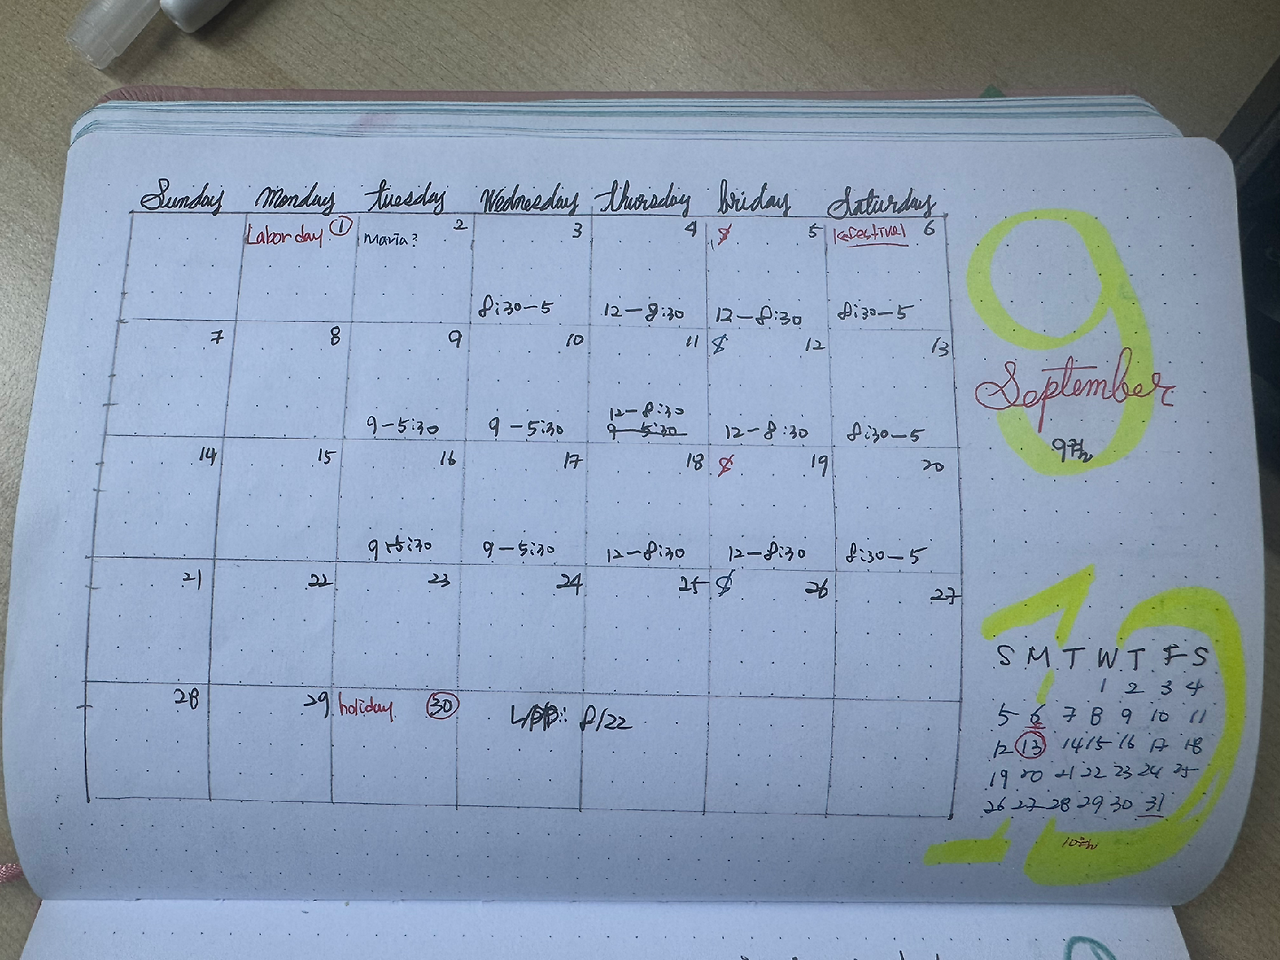 Sunday Monday Tuesday Wednesday Thursday Friday Saturday
Labor day 1 maria? 2 3 4 $ 5 K-festival 6
8:30-5 12-8:30 12-8:30 8:30-5
7 8 9 10 11 $ 12 13
12-8:30
9-5:30 9-5:30 9-5:30 12-8:30 8:30-5
14 15 16 17 18 $ 19 20
9-5:30 9-5:30 12-8:30 12-8:30 8:30-5
21 22 23 24 25 $ 26 27
28 29 holiday 30
8/22
9
September
9월
10
S M T W T F S
1 2 3 4
5 6 7 8 9 10 11
12 13 14 15 16 17 18
19 20 21 22 23 24 25
26 27 28 29 30 31
10월